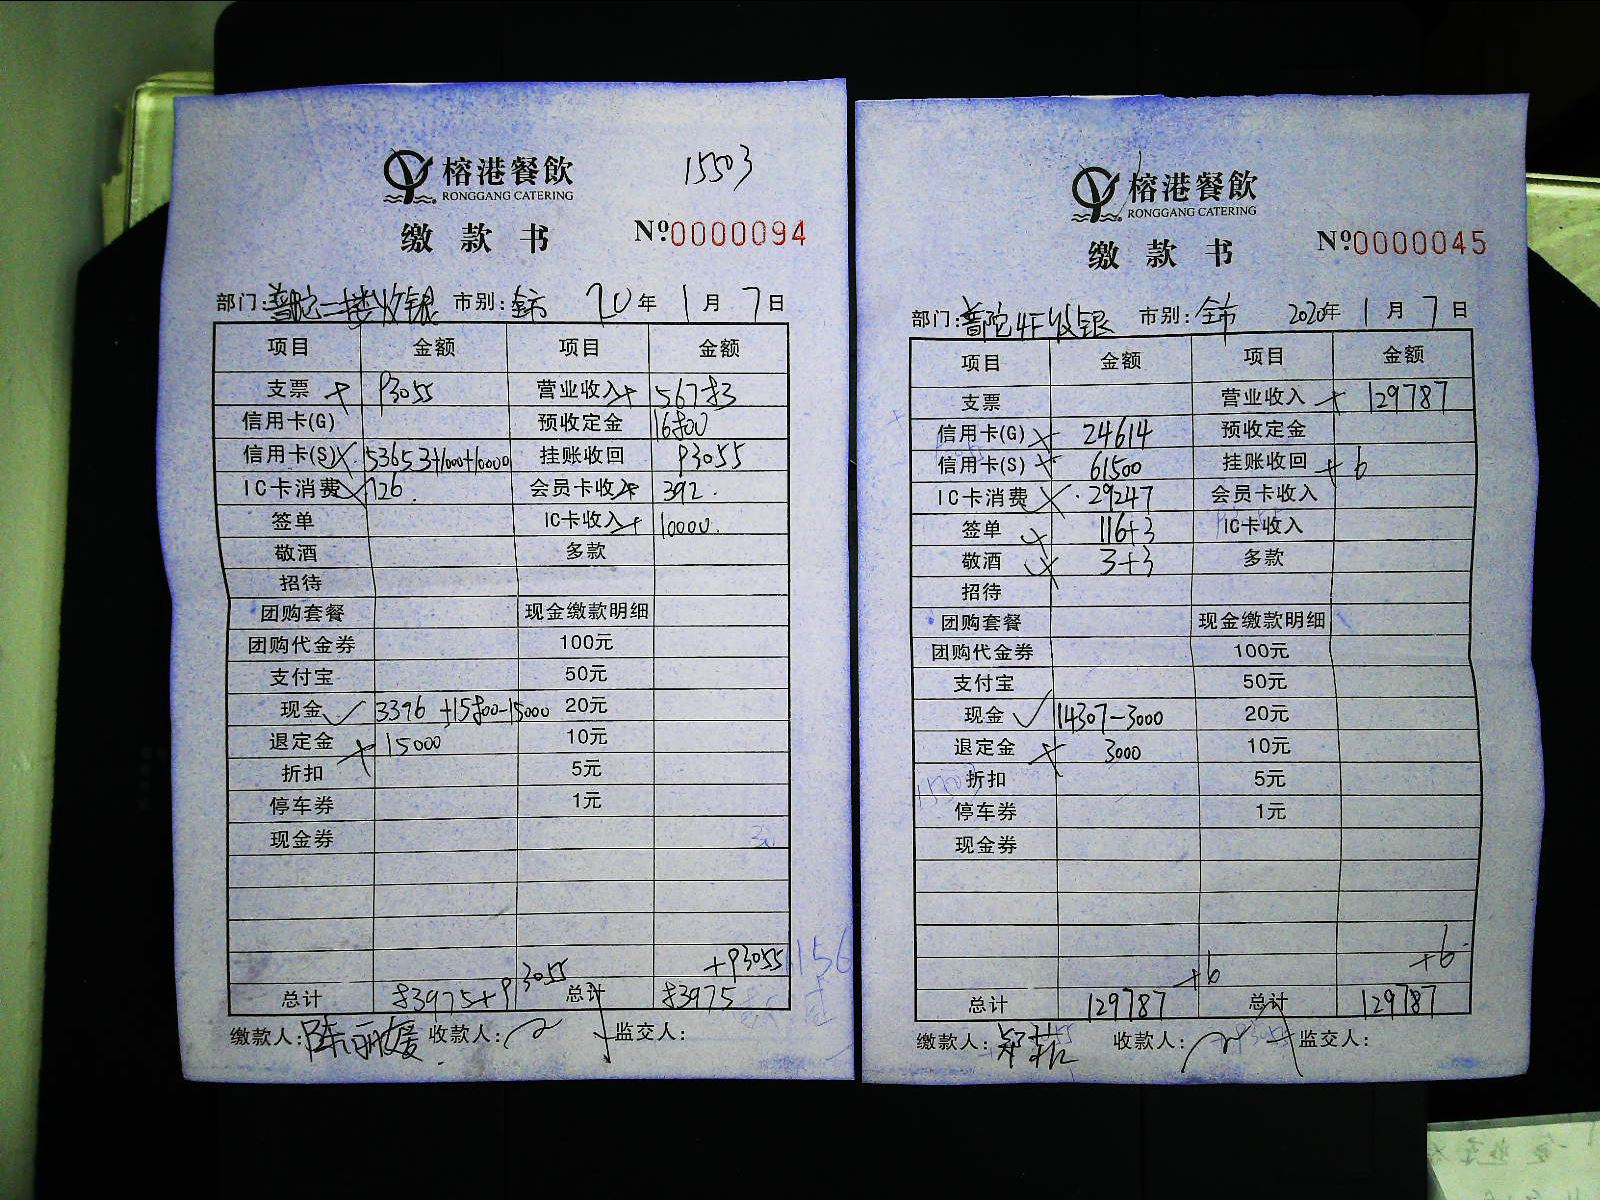 榕港餐飲
15503
RONGGANG CATERING
缴款书
№0000094
部门:普陀二楼收银 市别:全市 20年1月7日
项目 金额 项目 金额
支票 93055 营业收入 56783
信用卡(G) 预收定金 16800
信用卡(S) 53653+1000+10000 挂账收回 93055
IC卡消费 126. 会员卡收入 392.
签单 IC卡收入 10000.
敬酒 多款
招待
团购套餐 现金缴款明细
团购代金券 100元
支付宝 50元
现金 3396+15800-15000 20元
退定金 15000 10元
折扣 5元
停车券 1元
现金券
+93055
总计 83975+93055 总计 83975
缴款人:陈丽媛 收款人: 监交人:
榕港餐飲
RONGGANG CATERING
缴款书
№0000045
部门:普陀4F收银 市别:全市 2020年1月7日
项目 金额 项目 金额
支票 营业收入 129787
信用卡(G) 24614 预收定金
信用卡(S) 61500 挂账收回 +6
IC卡消费 29247 会员卡收入
签单 116+3 IC卡收入
敬酒 3+3 多款
招待
团购套餐 现金缴款明细
团购代金券 100元
支付宝 50元
现金 14307-3000 20元
退定金 3000 10元
折扣 5元
停车券 1元
现金券
+6 +6
总计 129787 总计 129787
缴款人: 收款人: 监交人: